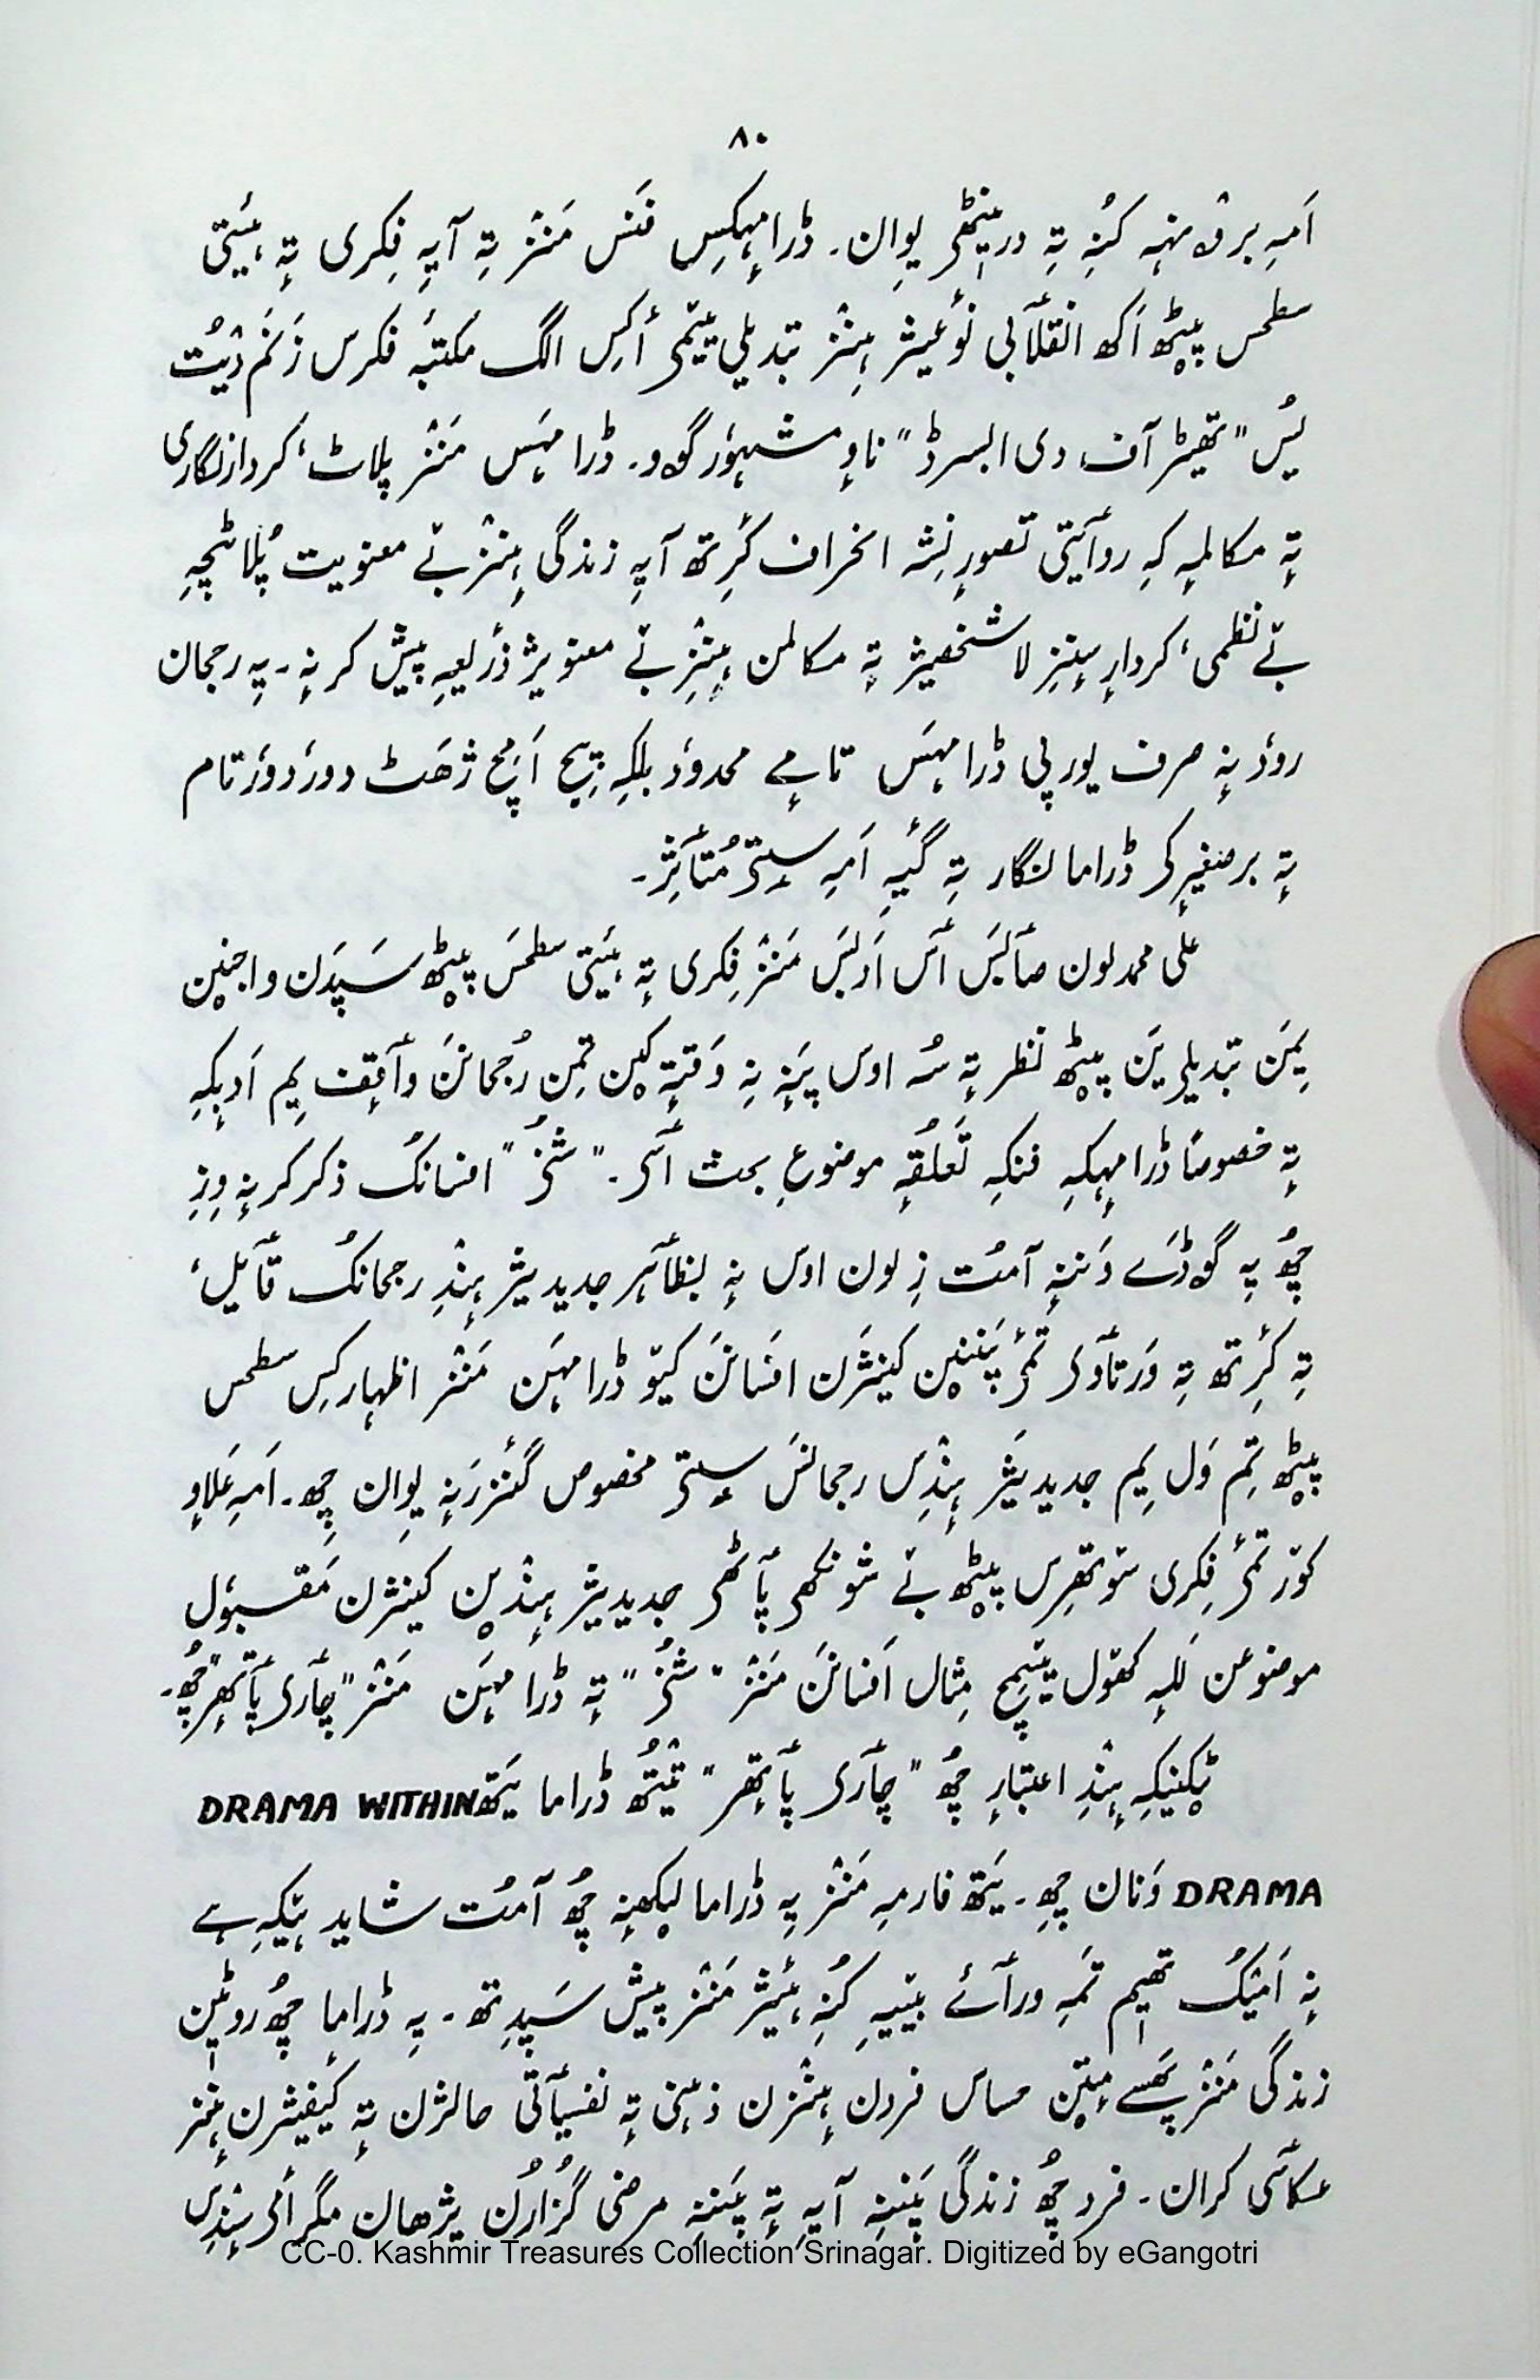 ۸۰
اَمہِ برٛونٛہہ کُنہِ تہِ درینٛٹھۍ یِوان۔ ڈرامہٕکِس فَنَس مَنٛز تہِ آیہِ فِکری تہٕ ہیٔتی
سطحس پیٚٹھ اَکھ انقلٲبی نوٗعیژ ہِنٛز تبدیلی یَتمۍ أکِس الگ مکتبہٕ فکرس زَنَم دیُت
یُس "تھیٹر آف دی ابسرڈ" ناوٕ مشہوٗر گوو۔ ڈرامہَس مَنٛز پلاٹ، کردارنگاری
تہٕ مکالمہٕ کہِ روٲیتی تصورِ نِشہِ انحراف کٔرِتھ آیہِ زندگی ہِنٛز بے معنویت پُلاٹچہِ
بے نظمی، کردارِ سٕنٛزِ لاشخصیژ تہٕ مکالمن ہٕنٛزِ بے معنویژ ذٔریعہِ پیش کرنہٕ۔ یہِ رجحان
روٗد نہٕ صرف یورپی ڈرامہَس تامے محدوٗد بلکہِ پیٚیہِ اَمِچ ژھَٹ دوٗر دوٗر تام
تہٕ برصغیرٕکۍ ڈراما نگار تہِ گیٔیہِ اَمہِ سٟتۍ مُتٲثِر۔
علی محمد لون صٲبَس ٲس اَدبَس مَنٛز فِکری تہٕ ہیٔتی سطحَس پیٚٹھ سَپدَن واجنٮ۪ن
یِمَن تبدیلی یَن پیٚٹھ نظر تہٕ سُہ اوس پَنہٕ نِہ وَقتہٕ کٮ۪ن تِمن رُجحانَن وٲقِف یِم اَدبٕکہِ
تہٕ خصوصاً ڈرامہٕکہِ فنکہِ تَعلُقہٕ موضوعِ بحث ٲسۍ۔ "شخُ" افسانُک ذکر کرنہٕ وِزِ
چھُ یہِ گوڈَے وَننہٕ آمُت زِ لون اوس نہٕ بظٲہر جدیدیژ ہٕنٛدِ رجحانُک قٲیل،
تہِ کٔرِتھ تہِ وَرتٲوۍ تمۍ پَننٮ۪ن کینٛژن افسانَن کیو ڈرامہَن مَنٛز اظہارکِس سطحس
پیٚٹھ تِم وَل یِم جدیدیَژ ہٕنٛدِس رجحانَس سٟتۍ مخصوص گٔنٛزرَنہٕ یِوان چھِ۔ اَمہِ عَلاوٕ
کوٚر تمۍ فِکری سوتھرِس پیٚٹھ بے شونکھۍ پٲٹھۍ جدیدیژ ہٕنٛدٮ۪ن کینٛژن مَقبوٗل
موضوعن لَلہِ کھول یَتھِچ مِثال اَفسانَن مَنٛز "شخُ" تہٕ ڈرامہَن مَنٛز "چٲرۍ پٲتھٕر" چھُ۔
ٹٮ۪کنیکہِ ہٕنٛدِ اعتبارِ چھُ "چٲرۍ پٲتھٕر" تیُتھ ڈراما یَتھ DRAMA WITHIN
DRAMA وَنان چھِ۔ یَتھ فارمہِ مَنٛز یہِ ڈراما لیٚکھنہٕ چھُ آمُت شاید ہیٚکہِ ہے
نہٕ اَمیُک تھیٖم تَمہِ ورٲے بیٚیہِ کُنہِ ہیٔژ مَنٛز پیش سَپدِتھ۔ یہِ ڈراما چھُ روٹین
زندگی مَنٛز پَھسے مٕتٮ۪ن حساس فردن ہٕنٛزن ذہنی تہٕ نفسیٲتی حالژن تہٕ کیفیژن ہٕنٛز
عکٲسی کران۔ فرد چھُ زندگی پَننہِ آیہِ تہٕ پَننہِ مرضی گُزارُن یژھان مگر أمۍ سٕنٛدِس
CC-0. Kashmir Treasures Collection Srinagar. Digitized by eGangotri